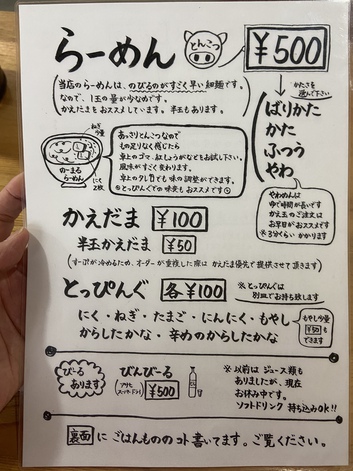 らーめん
とんこつ
¥500
当店のらーめんは、のびるのがすごく早い細麺です。
なので、1玉の量が少なめです。
かえだまをおススメしています。半玉もあります。
かたさを
選んで下さい
ばりかた
かた
ふつう
やわ
やわめんは
ゆで時間が長いです
かえ玉のご注文は
お早目がおススメです
※3分くらいかかります
ねぎ
少量
のーまる
らーめん
にく
2枚
あっさりとんこつなので
もの足りなく感じたら
卓上のゴマ、紅しょうがなどもお試し下さい。
風味がすごく変わります。
卓上のタレ
でも味の調整ができます。
※とっぴんぐでの味変もおススメです
かえだま ¥100
半玉かえだま ¥50
(すーぷが冷めるため、オーダーが重複した際はかえだま優先で提供させて頂きます)
とっぴんぐ 各¥100
※とっぴんぐは
別皿でお持ち致します
にく・ねぎ・たまご・にんにく・もやし
からしたかな・辛めのからしたかな
もやし少量
¥50も
できます
びーる
あります
びんびーる
(アサヒ
スーパードライ) ¥500
※以前はジュース類も
ありましたが、現在
お休み中です。
ソフトドリンク 持ち込みOK!!
裏面にごはんもののコト書いてます。ご覧ください。